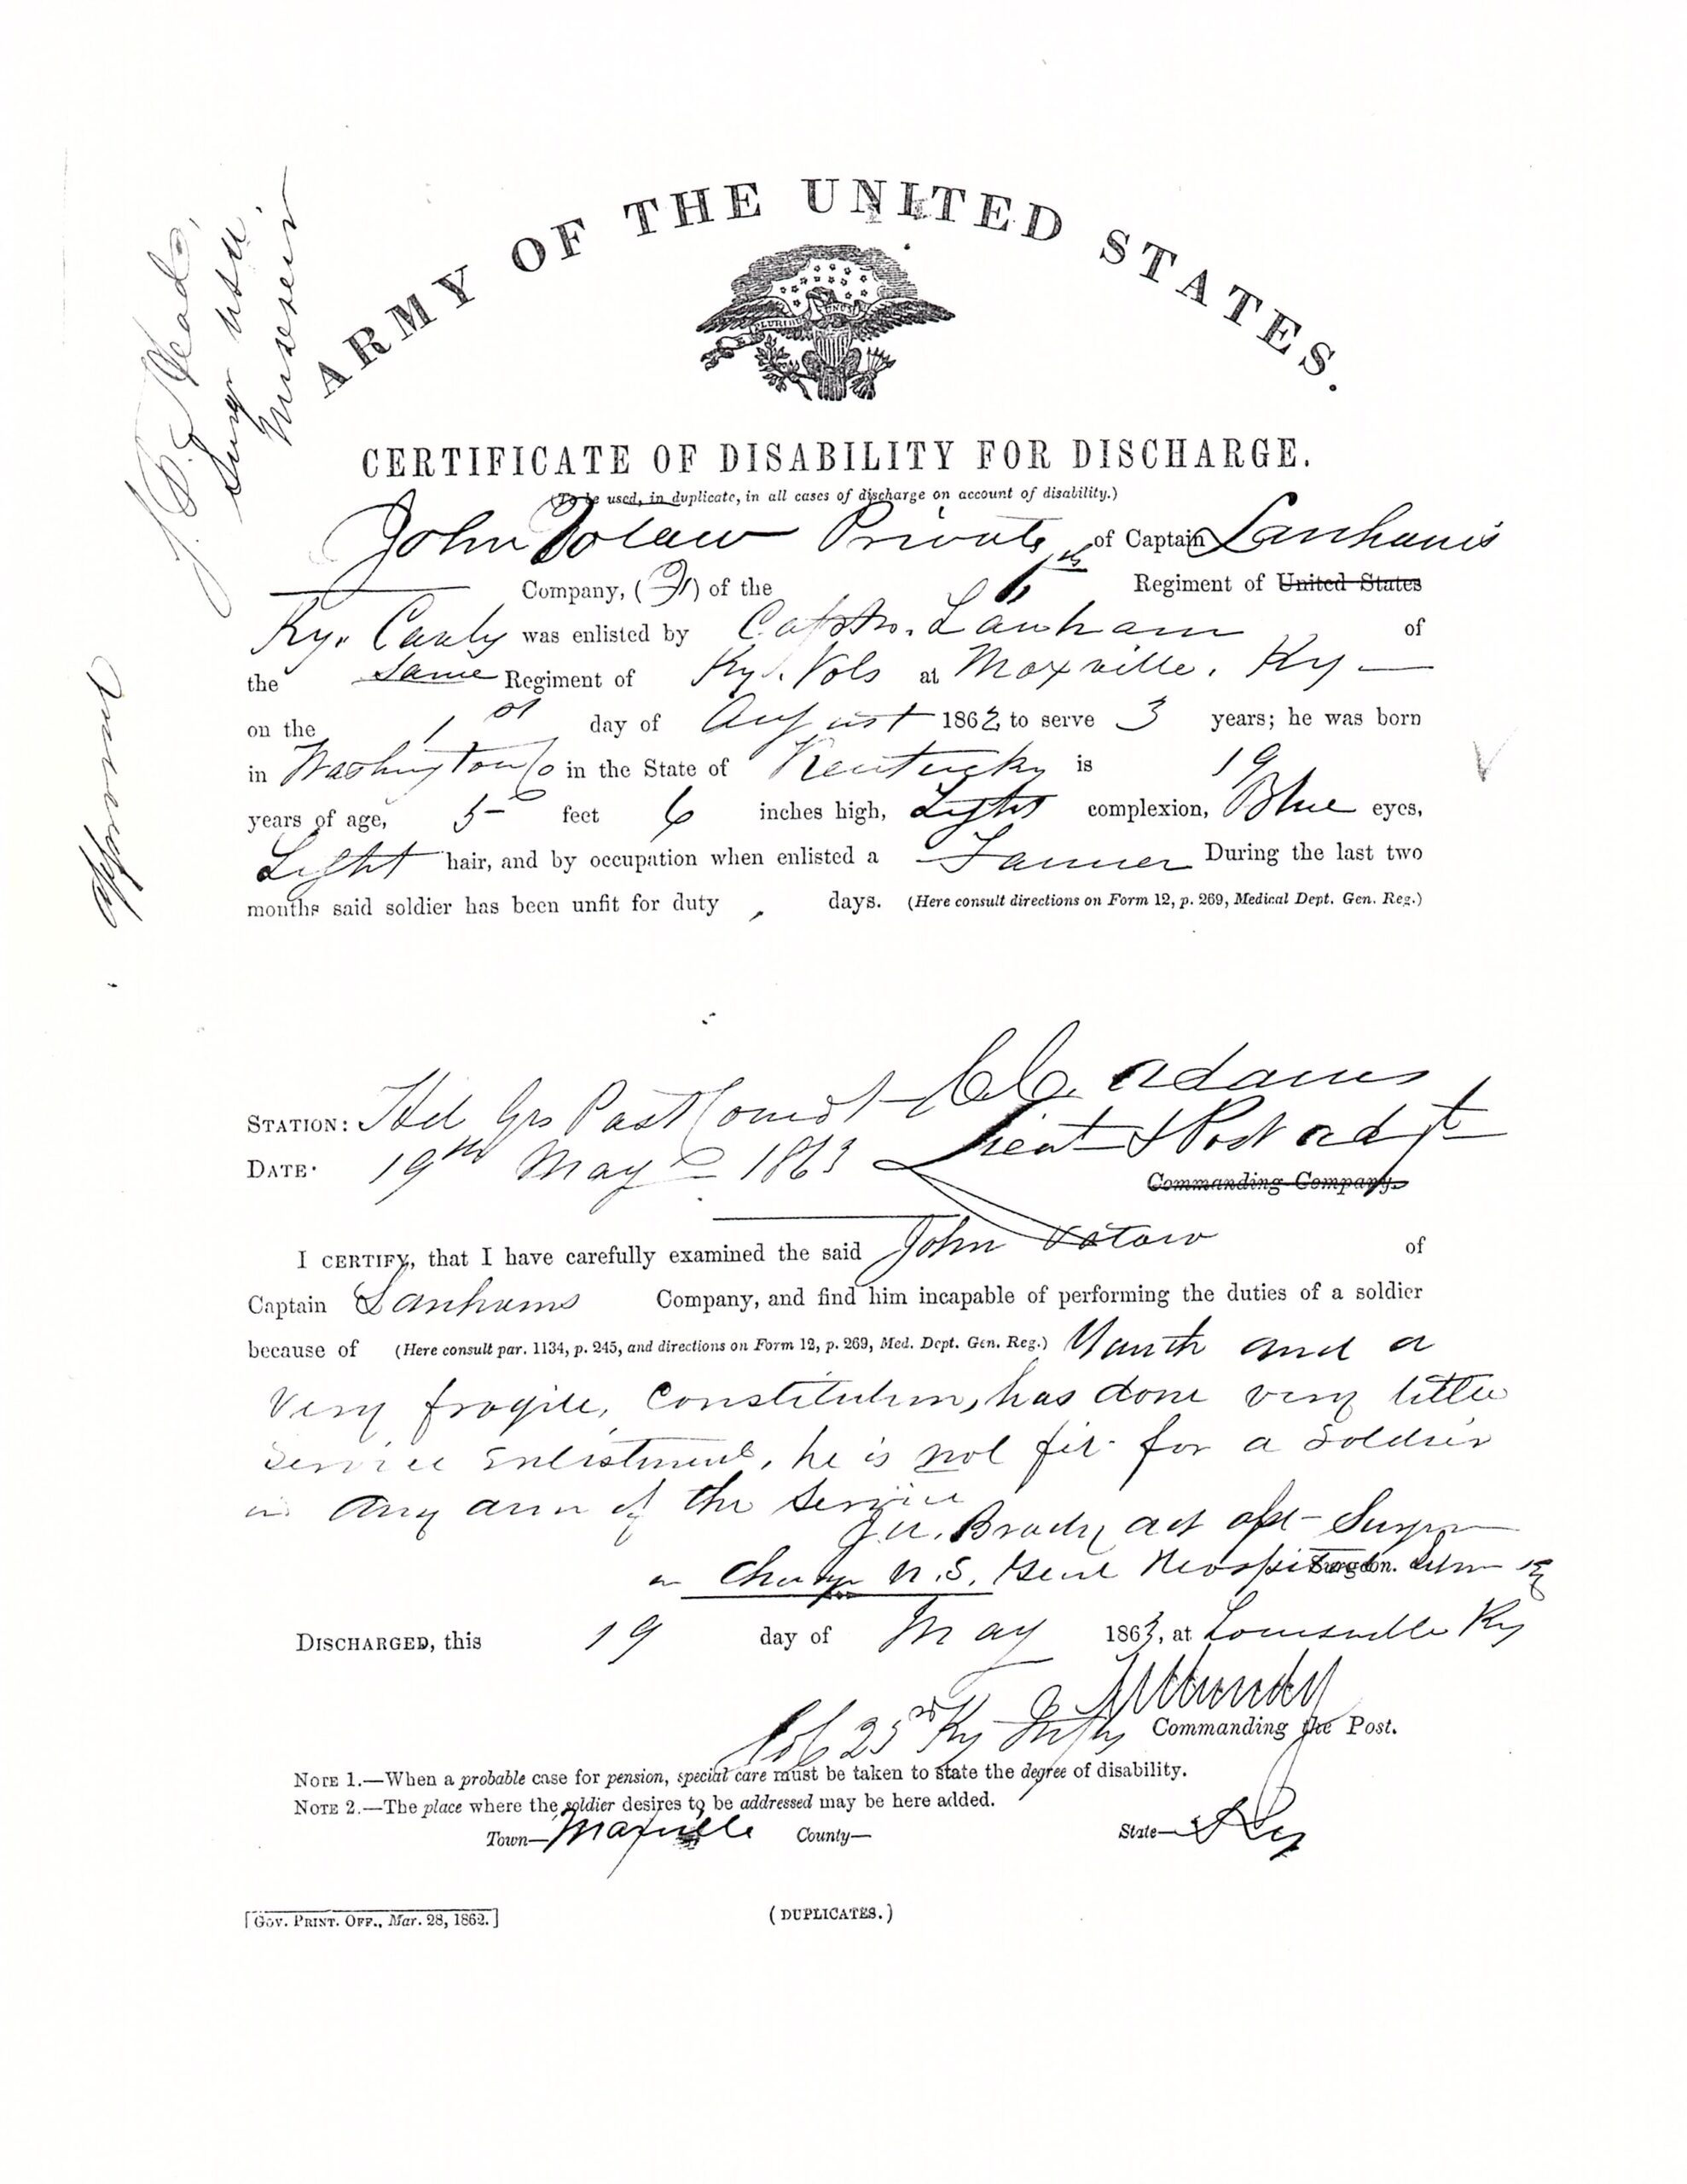 ARMY OF THE UNITED STATES.
PLURIBUS UNUM
CERTIFICATE OF DISABILITY FOR DISCHARGE.
(To be used, in duplicate, in all cases of discharge on account of disability.)
John Private of Captain Lanham's
Company, ( ) of the 6th Regiment of United States
Ky. Cavly was enlisted by Captn. Lanham of
the Same Regiment of Ky. Vols at Maxville, Ky
on the 1st day of August 1862 to serve 3 years; he was born
in Washington Co in the State of Kentucky is 19
years of age, 5 feet 6 inches high, Light complexion, Blue eyes,
Light hair, and by occupation when enlisted a Farmer During the last two
months said soldier has been unfit for duty days. (Here consult directions on Form 12, p. 269, Medical Dept. Gen. Reg.)
C.C. Adams
STATION: Hd Qrs Post Comdt Lieut & Post adjt
DATE: 19th May 1863
Commanding Company.
I CERTIFY, that I have carefully examined the said John Votaw of
Captain Lanhams Company, and find him incapable of performing the duties of a soldier
because of (Here consult par. 1134, p. 245, and directions on Form 12, p. 269, Med. Dept. Gen. Reg.) Youth and a
very fragile, Constitution, has done very little
service Enlistment, he is not fit for a Soldier
in any arm of the Service
Brady act asst Surgn
in Charge U.S. Genl Hospital Surgeon.
DISCHARGED, this 19 day of May 1863, at Louisville Ky
Mundy
Col 23rd Ky Infty Commanding the Post.
NOTE 1.—When a probable case for pension, special care must be taken to state the degree of disability.
NOTE 2.—The place where the soldier desires to be addressed may be here added.
Town—Maxville County— State—Ky
[GOV. PRINT. OFF., Mar. 28, 1862.]
(DUPLICATES.)
approved
Head,
Surgn USV.